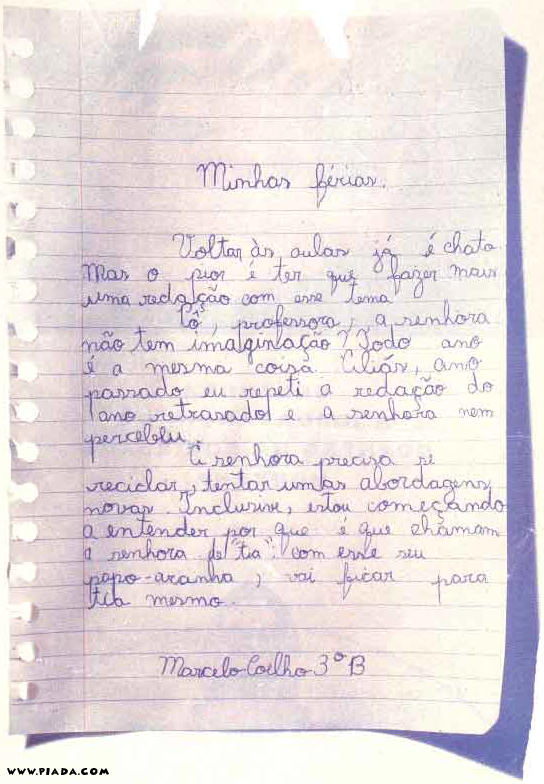 Minhas férias.
Voltar às aulas já é chato.
Mas o pior é ter que fazer mais
uma redação com esse tema
Pô, professora, a senhora
não tem imaginação? Todo ano
é a mesma coisa. Aliás, ano
passado eu repeti a redação do
ano retrasado e a senhora nem
percebeu.
A senhora precisa se
reciclar, tentar umas abordagens
novas. Inclusive, estou começando
a entender por que é que chamam
a senhora de "tia": com esse seu
papo-aranha, vai ficar para
tia mesmo.
Marcelo Coelho 3º B
WWW.PIADA.COM